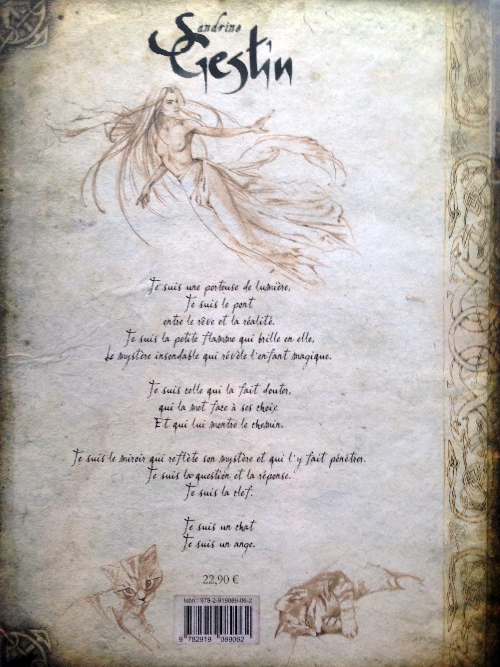 Sandrine
Gestin
Je suis une porteuse de lumière,
Je suis le pont
entre le rêve et la réalité.
Je suis la petite flamme qui brille en elle,
Le mystère insondable qui révèle l'enfant magique.
Je suis celle qui la fait douter,
qui la met face à ses choix
Et qui lui montre le chemin.
Je suis le miroir qui reflète son mystère et qui l'y fait pénétrer.
Je suis la question et la réponse.
Je suis la clef.
Je suis un chat
Je suis un ange.
22,90 €
Isbn : 978-2-919089-06-2
9 782919 089062